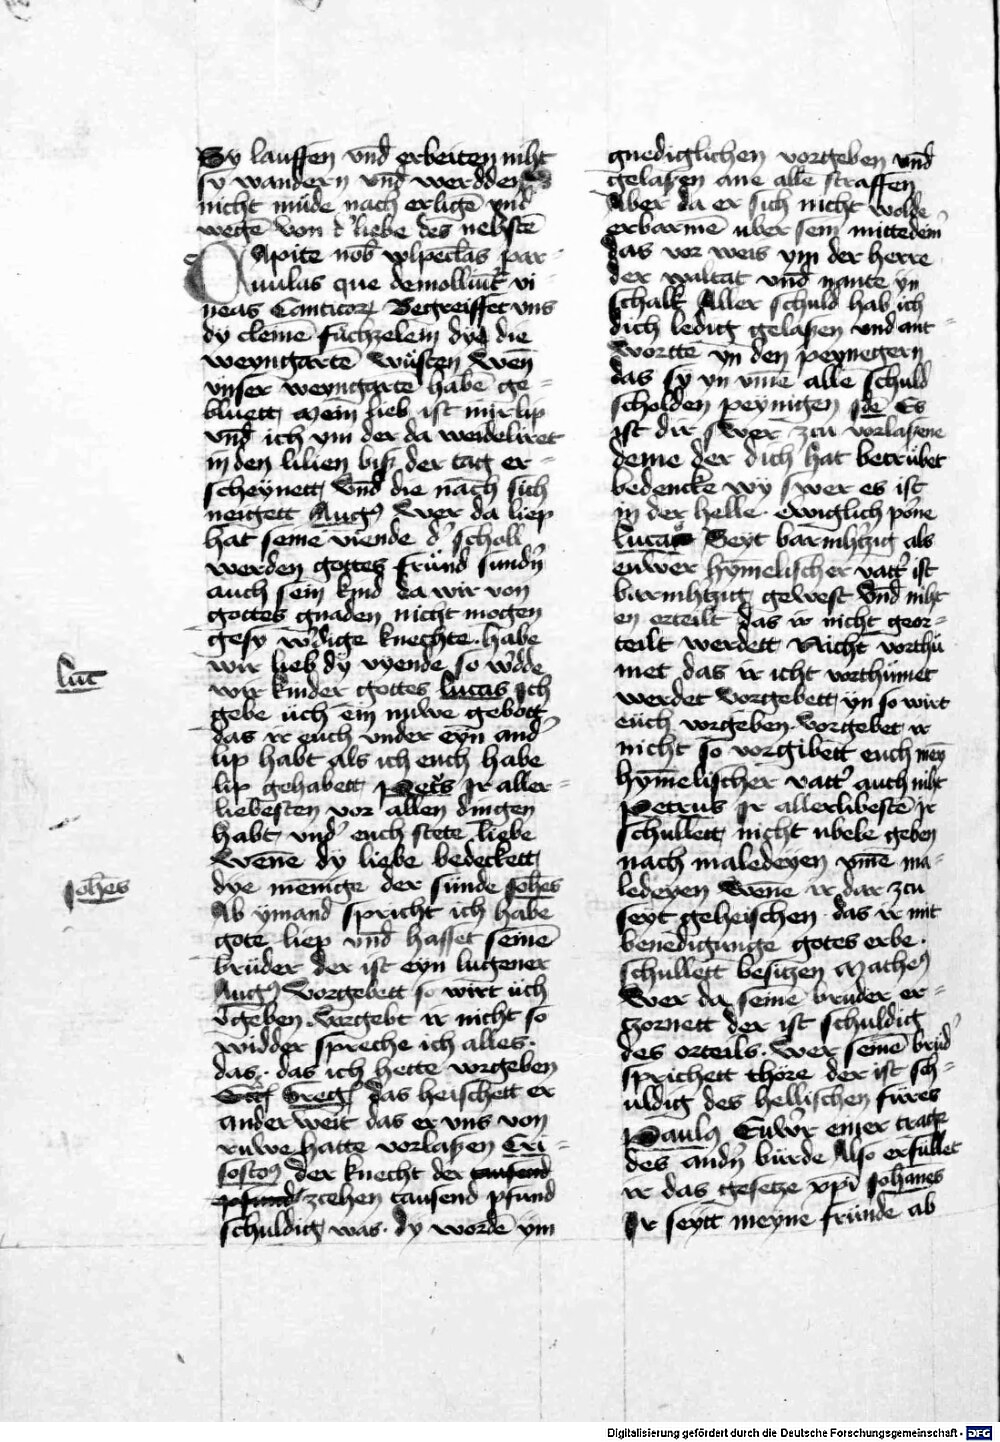 Sy lauffen vnd erbeiten niht
sy wandern vnd werdden
nicht müde nach erlige vnd
wegē von d' liebe des nehstē
Capite nob̄ wlpecl̄as par-
uulas que demoliūt vi
neas Canticor̄ Begreiffet vns
dy cleinē füchzelein dye die
weyngartē wüsten wen̄
vnser weyngartē habē ge=
bluett mein lieb ist mir lip
vnd ich ym der da weideliret
in den lilien biß der tag er=
scheynett vnd die nach sich
neigett Aug9 Wer da liep
hat seine viende d' scholl
werden gottes fründ sundn̄
auch sein kind da wir von
gottes gnaden nicht mogen
gesy w'dige knechte habe
wir lieb dy vyende so w'dde
wir kinder gottes lucas Ich
gebe üch ein nuwe gebott
das ir euch vnder eyn and'
lip habt als ich euch habe
lip gehabett Pet's Ir aller=
liebesten vor allen dingen
habt vnd' euch stete liebe
Wenē dy liebe bedeckett
dye menige der sünde Joh̄es
Ab ymand spricht ich habe
gote liep vnd hasset seinē
brüder der ist eyn lugener
Aug9 Vorgebett so wirt üch
v'geben Vorgebt ir nicht so
widder spreche ich alles
das das ich hette vorgeben
Greg das heischett er
anderweit das er vns von
ruwe hatte vorlaßen Cri=
sosto9 der knecht der tausend
pfund zcehen tausend pfund
schuldig was dy wordē ym
gnediglichen vorgeben vnd
gelaßen ane alle straffen
Aber da er sich nicht wolde
erbarmē uber sein mittedein'
das vor weis ym der herre
der waltat vnd nante yn
schalk Aller schuld hab ich
dich ledig gelaßen vnd ant=
wortte yn den peynegern
das sy yn vm̄e alle schuld
scholden peynigen Es
ist dir swer zcu vorlaßene
deme der dich hat betrübet
bedencke wy swer es ist
in der helle ewiglich
Lucas Seyt barmh'tzig als
euwer hymelischer vatt' ist
barmh'tzig gewest vnd niht
en orteilt das ir nicht geor=
teilt werdett Nicht vorthu
met das ir icht vorthümet
werdet Vorgebett yn so wirt
euch vorgeben vorgebet ir
nicht so vorgibett euch mey
hym̄elischer vatt' auch niht
Petrus Ir allerlibestē Ir
schullett nicht ubele geben
nach maledeyen vm̄e ma=
ledeyen Wene ir dar zcu
seyt geheischen das ir mit
benedigunge gotes erbe
schullett besitzen Matheo
Wer da seinē bruder er=
zornett der ist schuldig
des orteils Wer seinē brüd'
sprichett thöre der ist sch=
uldig des hellischen füres
Paul9 Euw'r einer trage
des andn̄ bürde Also erfüllet
ir das gesetze xpi Johanes
Ir seytt meyne fründe ab
luc
Joh̄es
Digitalisierung gefördert durch die Deutsche Forschungsgemeinschaft - DFG